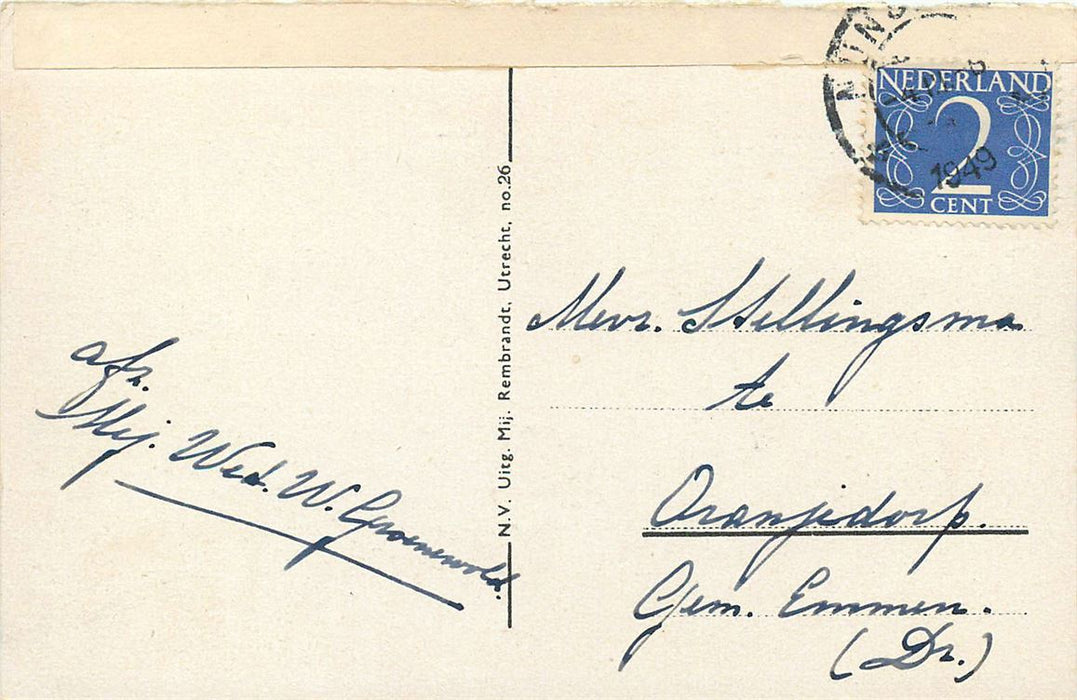 NEDERLAND
2
CENT
1949
N.V. Uitg. Mij. Rembrandt, Utrecht, no.26
afz.
Mej. Wed. W. Groenewold.
Mevr. Stellingsma
te
Oranjedorp.
Gem. Emmen.
(Dr.)